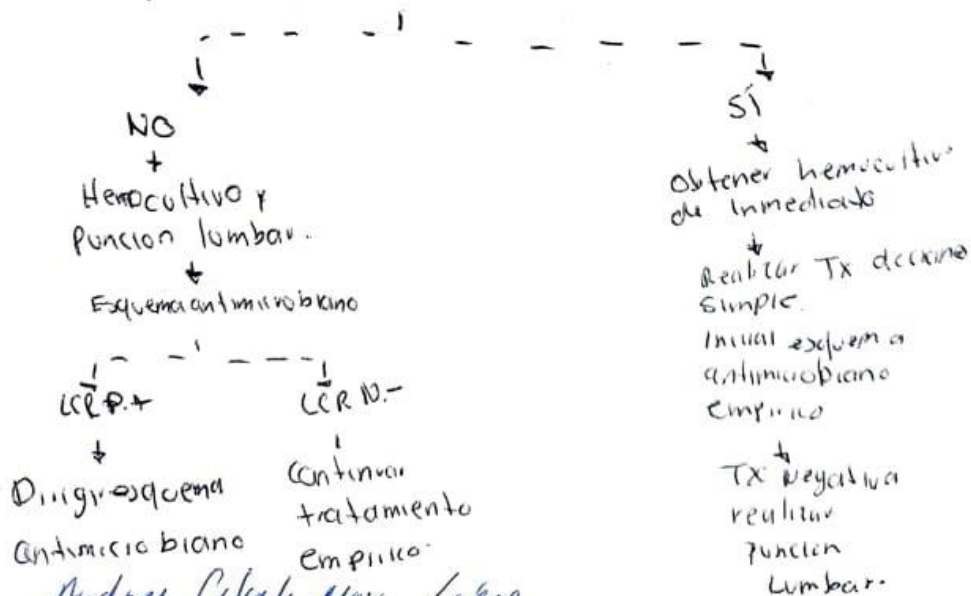 NO
Hemocultivo y
Puncion lumbar.
Esquema antimicrobiano
LCR P.+
Dirigir esquema
antimicrobiano
LCR N.-
Continuar
tratamiento
empirico.
SÍ
Obtener hemocultivo
de inmediato
Realizar Tx
simple.
Inicial esquema
antimicrobiano
empirico
TX Negativa
realizar
Puncion
Lumbar.